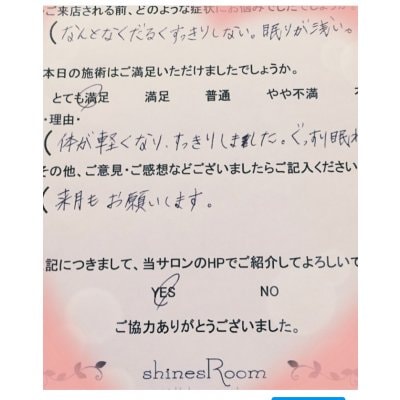 ご来店される前、どのような症状にお悩みでしたでしょうか
(なんとなくだるくすっきりしない。眠りが浅い。
本日の施術はご満足いただけましたでしょうか。
とても満足 満足 普通 やや不満
・理由・
(体が軽くなり、すっきりしました。ぐっすり眠れ
その他、ご意見・ご感想などございましたらご記入ください
(来月もお願いします。
記につきまして、当サロンのHPでご紹介してよろしいで
YES NO
ご協力ありがとうございました。
shinesRoom